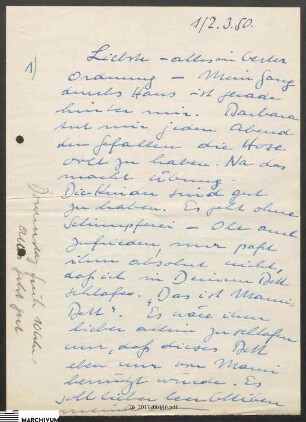 1/2.3.80.
1)
Liebste – alles in bester
Ordnung – Mein Gang
durchs Haus ist gerade
hinter mir. Barbara
tut mir jeden Abend
den Gefallen die Hose
voll zu haben. Na das
macht Übung.
Die Kinder sind gut
zu haben. Es geht ohne
Schimpferei – Ole auch
zufrieden, nur paßt
ihm absolut nicht,
daß ich in Deinem Bett
schlafe. „Das ist Mammi,
Bett". Es wäre ihm
lieber allein zu schlafen
nur, daß dieses Bett
eben nur von Mammi
benützt würde. Es
soll lieber leer bleiben
Donnerstag früh
alles geht gut
26_2017_00446.pdf
MARCHIVUM